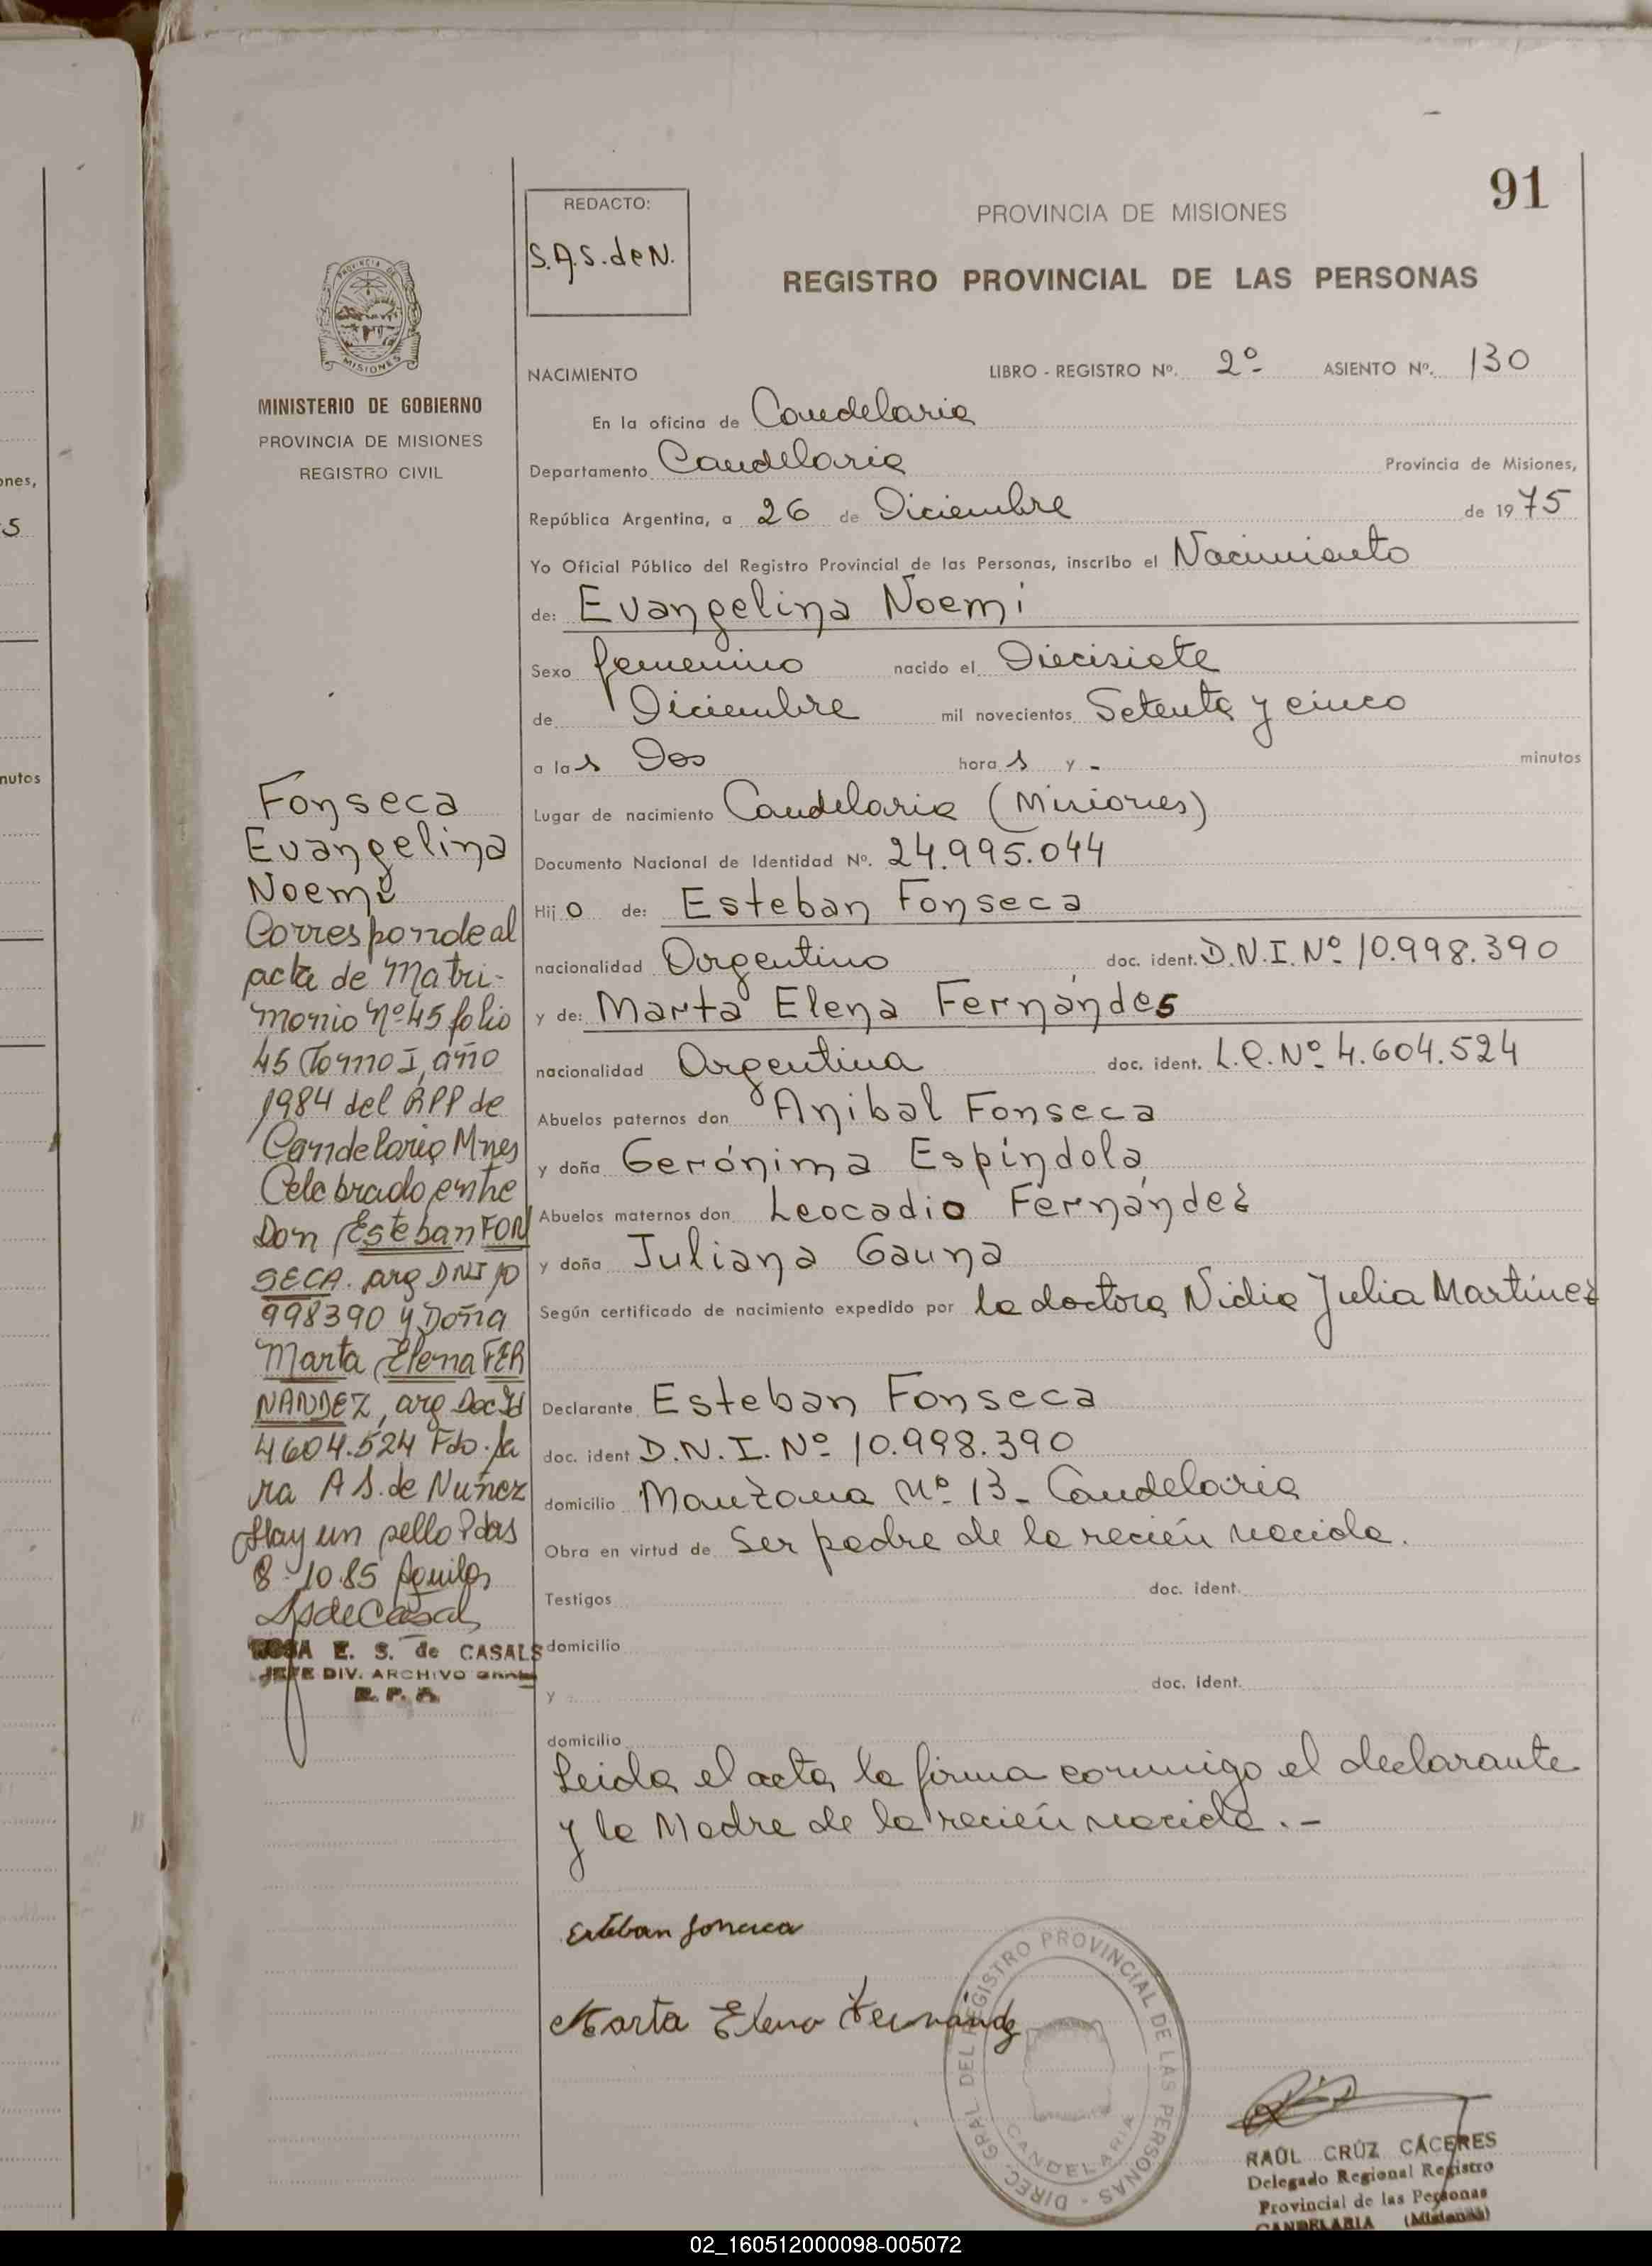 91
REDACTO:
S.A.S. de N.
PROVINCIA DE MISIONES
REGISTRO PROVINCIAL DE LAS PERSONAS
PROVINCIA DE
MISIONES
MINISTERIO DE GOBIERNO
PROVINCIA DE MISIONES
REGISTRO CIVIL
NACIMIENTO LIBRO - REGISTRO Nº. 2º ASIENTO Nº. 130
En la oficina de Candelaria
Departamento Candelaria Provincia de Misiones,
República Argentina, a 26 de Diciembre de 1975
Yo Oficial Público del Registro Provincial de las Personas, inscribo el Nacimiento
de: Evangelina Noemi
Sexo femenino nacido el Diecisiete
de Diciembre mil novecientos Setenta y cinco
a las Dos horas y - minutos
Lugar de nacimiento Candelaria (Misiones)
Documento Nacional de Identidad Nº. 24.995.044
Hijo de: Esteban Fonseca
nacionalidad Argentino doc. ident. D.N.I. Nº 10.998.390
y de: Marta Elena Fernández
nacionalidad Argentina doc. ident. L.C. Nº 4.604.524
Abuelos paternos don Anibal Fonseca
y doña Gerónima Espíndola
Abuelos maternos don Leocadio Fernández
y doña Juliana Gauna
Según certificado de nacimiento expedido por la doctora Nidia Julia Martínez
Declarante Esteban Fonseca
doc. ident D.N.I. Nº 10.998.390
domicilio Manzana Nº 13 - Candelaria
Obra en virtud de Ser padre de la recién nacida.
Testigos doc. ident.
domicilio
y doc. ident.
domicilio
Leida el acta, la firma conmigo el declarante
y la Madre de la recién nacida.-
Esteban Fonseca
Marta Elena Fernández
Fonseca
Evangelina
Noemi
Corresponde al
acta de Matri-
monio Nº 45 folio
45 Tomo I, año
1984 del RPP de
Candelaria Mnes
Celebrado entre
Don Esteban FON
SECA. arg DNI 10
998390 y Doña
Marta Elena FER
NANDEZ, arg Doc Id
4604.524 Fdo. Sa
ra A S. de Nuñez
Hay un sello Pdas
8-10-85
ROSA E. S. de CASALS
JEFE DIV. ARCHIVO GRAL
R. P. P.
DIREC. GRAL. DEL REGISTRO PROVINCIAL DE LAS PERSONAS -
CANDELARIA
RAÚL CRÚZ CÁCERES
Delegado Regional Registro
Provincial de las Personas
CANDELARIA (Misiones)
ones,
5
nutos
02_160512000098-005072